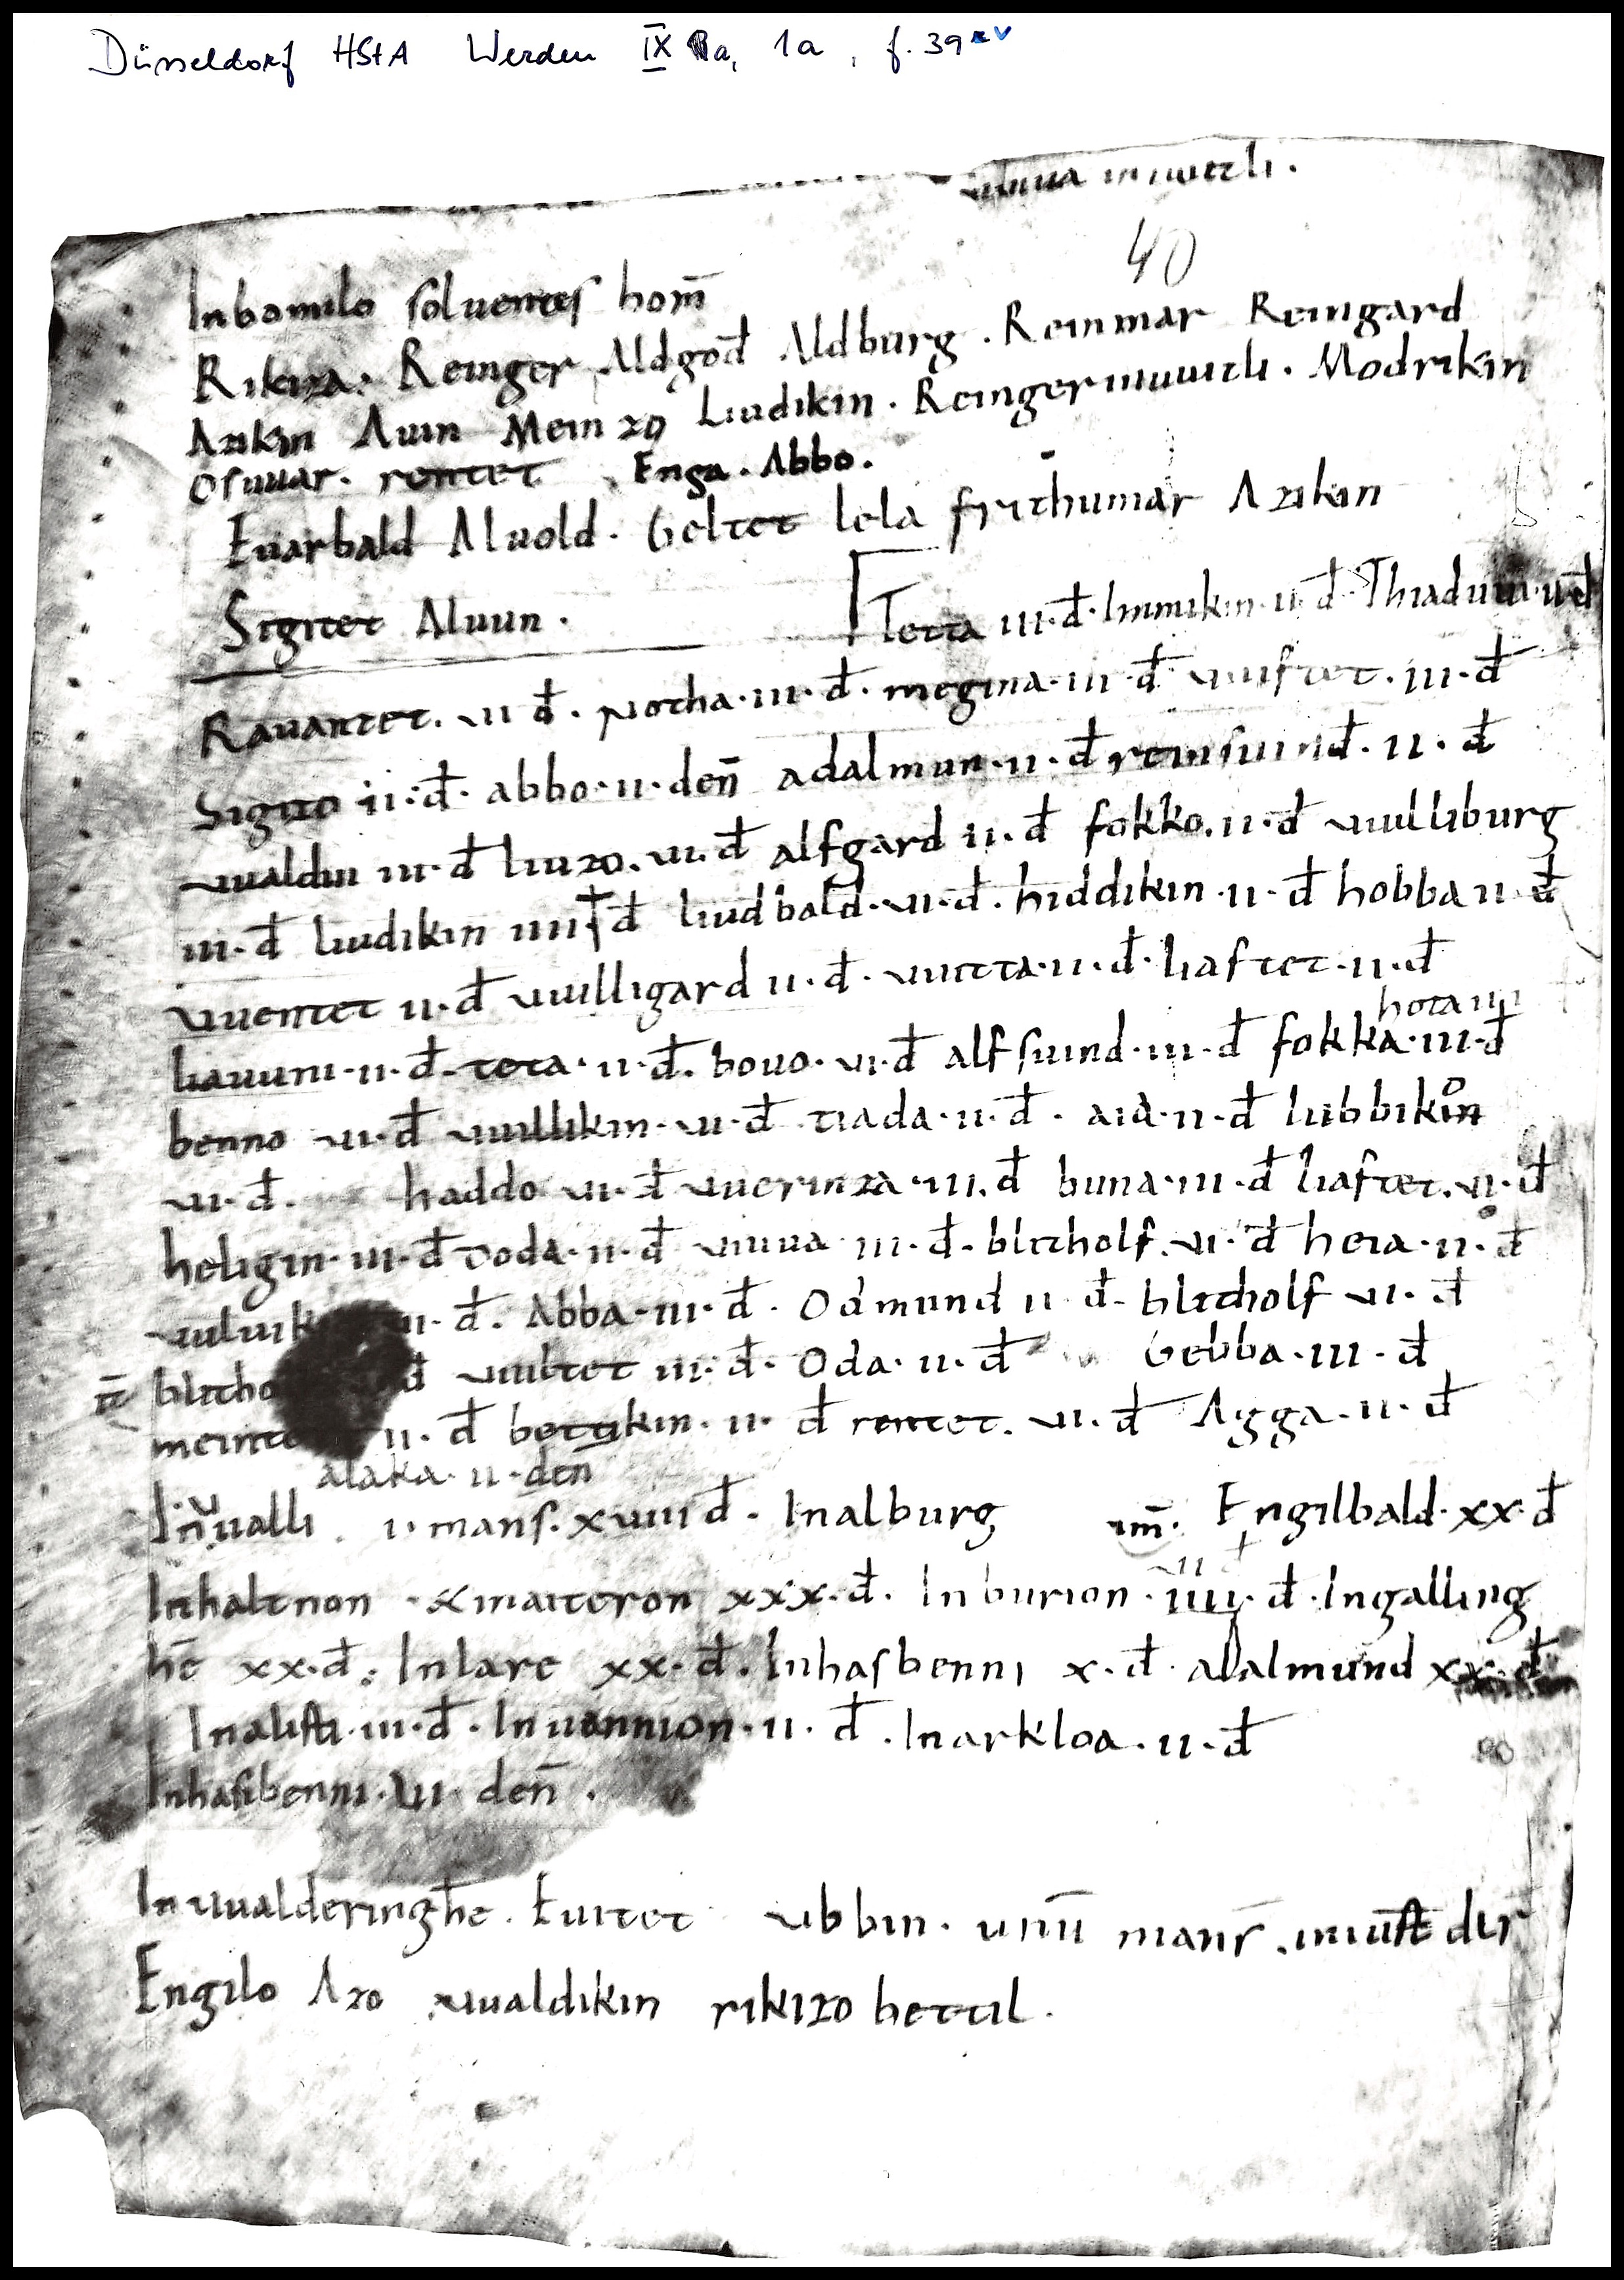 Düsseldorf HStA Werden IX a, 1a, f. 39 v
40
Inbomilo soluentes hom̄
Rikiza. Reinger Aldgod̄ Aldburg. Reinmar Reingard
Azikin Auin Meinzo Liudikin. Reinger Modrikin
Osuuar. rentet. Enga. Abbo.
Euarbald Aluold. Geltet lela frithumar Azikin
Sigitet Aluun.
Tetta iii. đ. Immikin. ii. đ. Thiaduui
Rauantet. vi đ. notha. iii. đ. megina. iii. đ vuiftet. iii. đ
Sigito ii. đ. abbo. ii. den̄ adalmun. ii. đ reinsuind. ii. đ
vualdui iii. đ liuzo. vi. đ alfgard ii. đ fokko. ii. đ vuilliburg
iii. đ liudikin iiii đ liudbald. vi. đ. hiddikin. ii. đ hobba ii đ
vuentet ii. đ vuilligard ii. đ. vuitta. ii. đ. liaftet. ii. đ
hota iii
liauuni. ii. đ. tota. ii. đ. bouo. vi. đ alfsuind. iii. đ fokka. iii. đ
benno vi. đ vuillikin. vi. đ tiada. ii. đ. aia. ii. đ lubbikin
vi. đ. haddo vi. đ vuerinza. iii. đ buna. iii. đ liaftet. vi. đ
heligin. iii. đ doda. ii. đ vuiua iii. đ. blitholf. vi. đ heia. ii. đ
đ. Abba. iii. đ. Odmund ii đ. blitholf vi. đ
blitho đ vuibtet iii. đ. Oda. ii. đ Gebba. iii. đ
ii. đ bettikin. ii. đ rentet. vi. đ Agga. ii. đ
alaka. ii. den
Inuualli mans. xviii đ. Inalburg Engilbald. xx. đ
Inhaltnon. & inaitteron xxx. đ. Inburion. iiii. đ. Ingalling
hē xx. đ. Inlare xx. đ. Inhasbenni x. đ. adalmund
Inalisti. iii. đ. Inuannion. ii. đ. Inarkloa. ii. đ
Inhasibenni. vii den̄.
Inuualderinghe. Euitet vbbin. unū mans̄.
Engilo Azo vualdikin rikizo hettil.